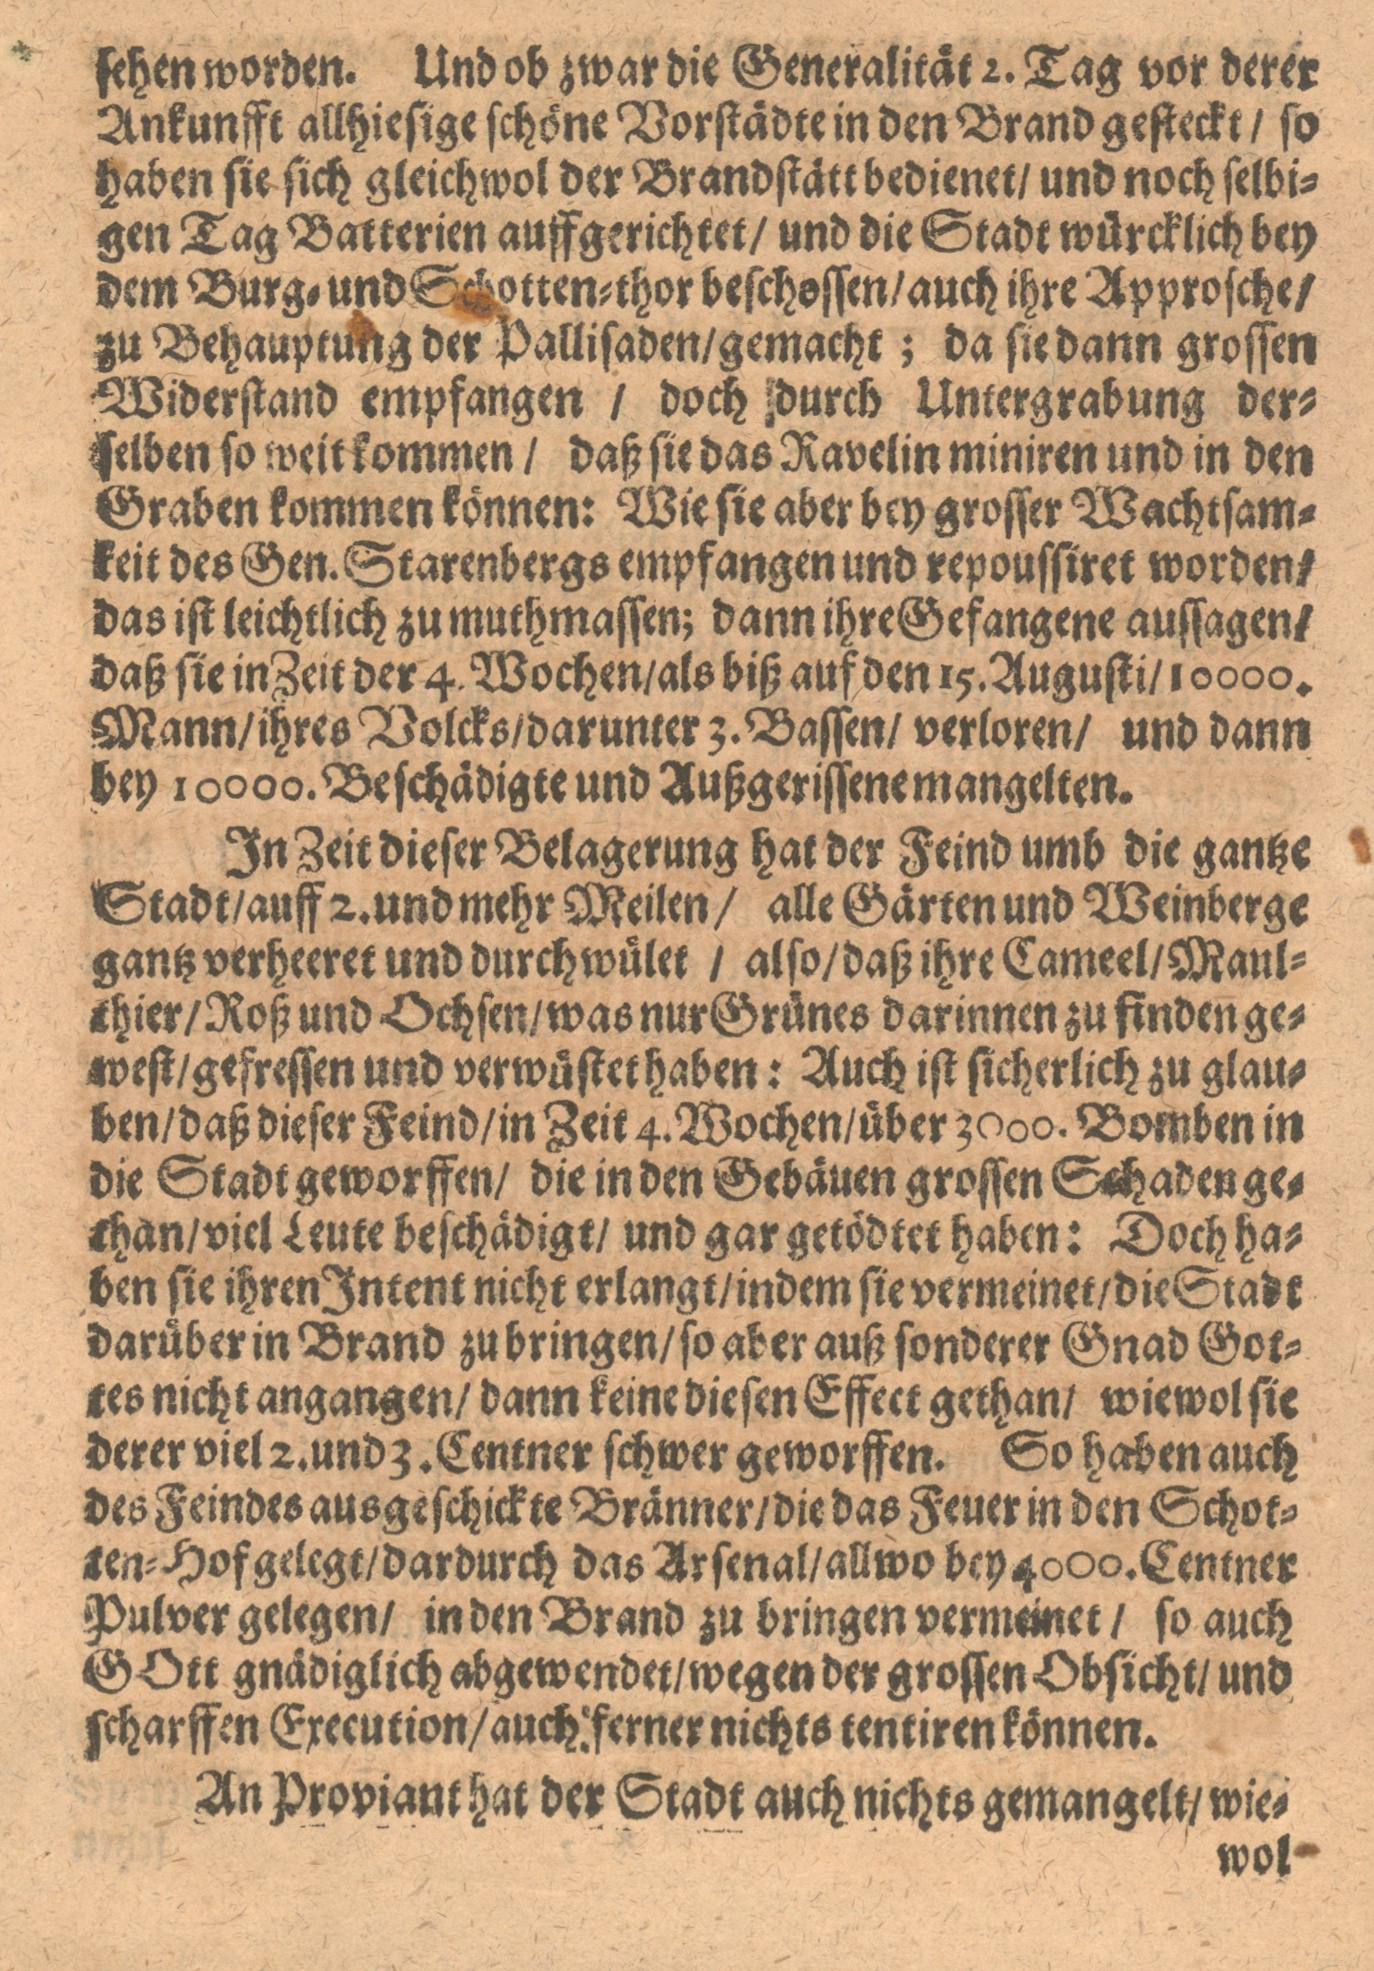 sehen worden. Und ob zwar die Generalität 2. Tag vor derer
Ankunfft allhiesige schöne Vorstädte in den Brand gesteckt / so
haben sie sich gleichwol der Brandstätt bedienet / und noch selbi-
gen Tag Batterien auffgerichtet / und die Stadt würcklich bey
dem Burg- und Schotten-thor beschossen / auch ihre Approsche /
zu Behauptung der Pallisaden / gemacht ; da sie dann grossen
Widerstand empfangen / doch durch Untergrabung der-
selben so weit kommen / daß sie das Ravelin miniren und in den
Graben kommen können: Wie sie aber bey grosser Wachtsam-
keit des Gen. Starenbergs empfangen und repoussiret worden /
das ist leichtlich zu muthmassen; dann ihre Gefangene aussagen /
daß sie in Zeit der 4. Wochen / als biß auf den 15. Augusti / 10000.
Mann / ihres Volcks / darunter 3. Bassen / verloren / und dann
bey 10000. Beschädigte und Außgerissene mangelten.
In Zeit dieser Belagerung hat der Feind umb die gantze
Stadt / auff 2. und mehr Meilen / alle Gärten und Weinberge
gantz verheeret und durchwület / also / daß ihre Cameel / Maul-
thier / Roß und Ochsen / was nur Grünes darinnen zu finden ge-
west / gefressen und verwüstet haben : Auch ist sicherlich zu glau-
ben / daß dieser Feind / in Zeit 4. Wochen / über 3000. Bomben in
die Stadt geworffen / die in den Gebäuen grossen Schaden ge-
than / viel Leute beschädigt / und gar getödtet haben : Doch ha-
ben sie ihren Intent nicht erlangt / indem sie vermeinet / die Stadt
darüber in Brand zu bringen / so aber auß sonderer Gnad Got-
tes nicht angangen / dann keine diesen Effect gethan / wiewol sie
derer viel 2. und 3. Centner schwer geworffen. So haben auch
des Feindes ausgeschickte Bränner / die das Feuer in den Schot-
ten-Hof gelegt / dardurch das Arsenal / allwo bey 4000. Centner
Pulver gelegen / in den Brand zu bringen vermeinet / so auch
GOtt gnädiglich abgewendet / wegen der grossen Obsicht / und
scharffen Execution / auch ferner nichts tentiren können.
An Proviant hat der Stadt auch nichts gemangelt / wie-
wol